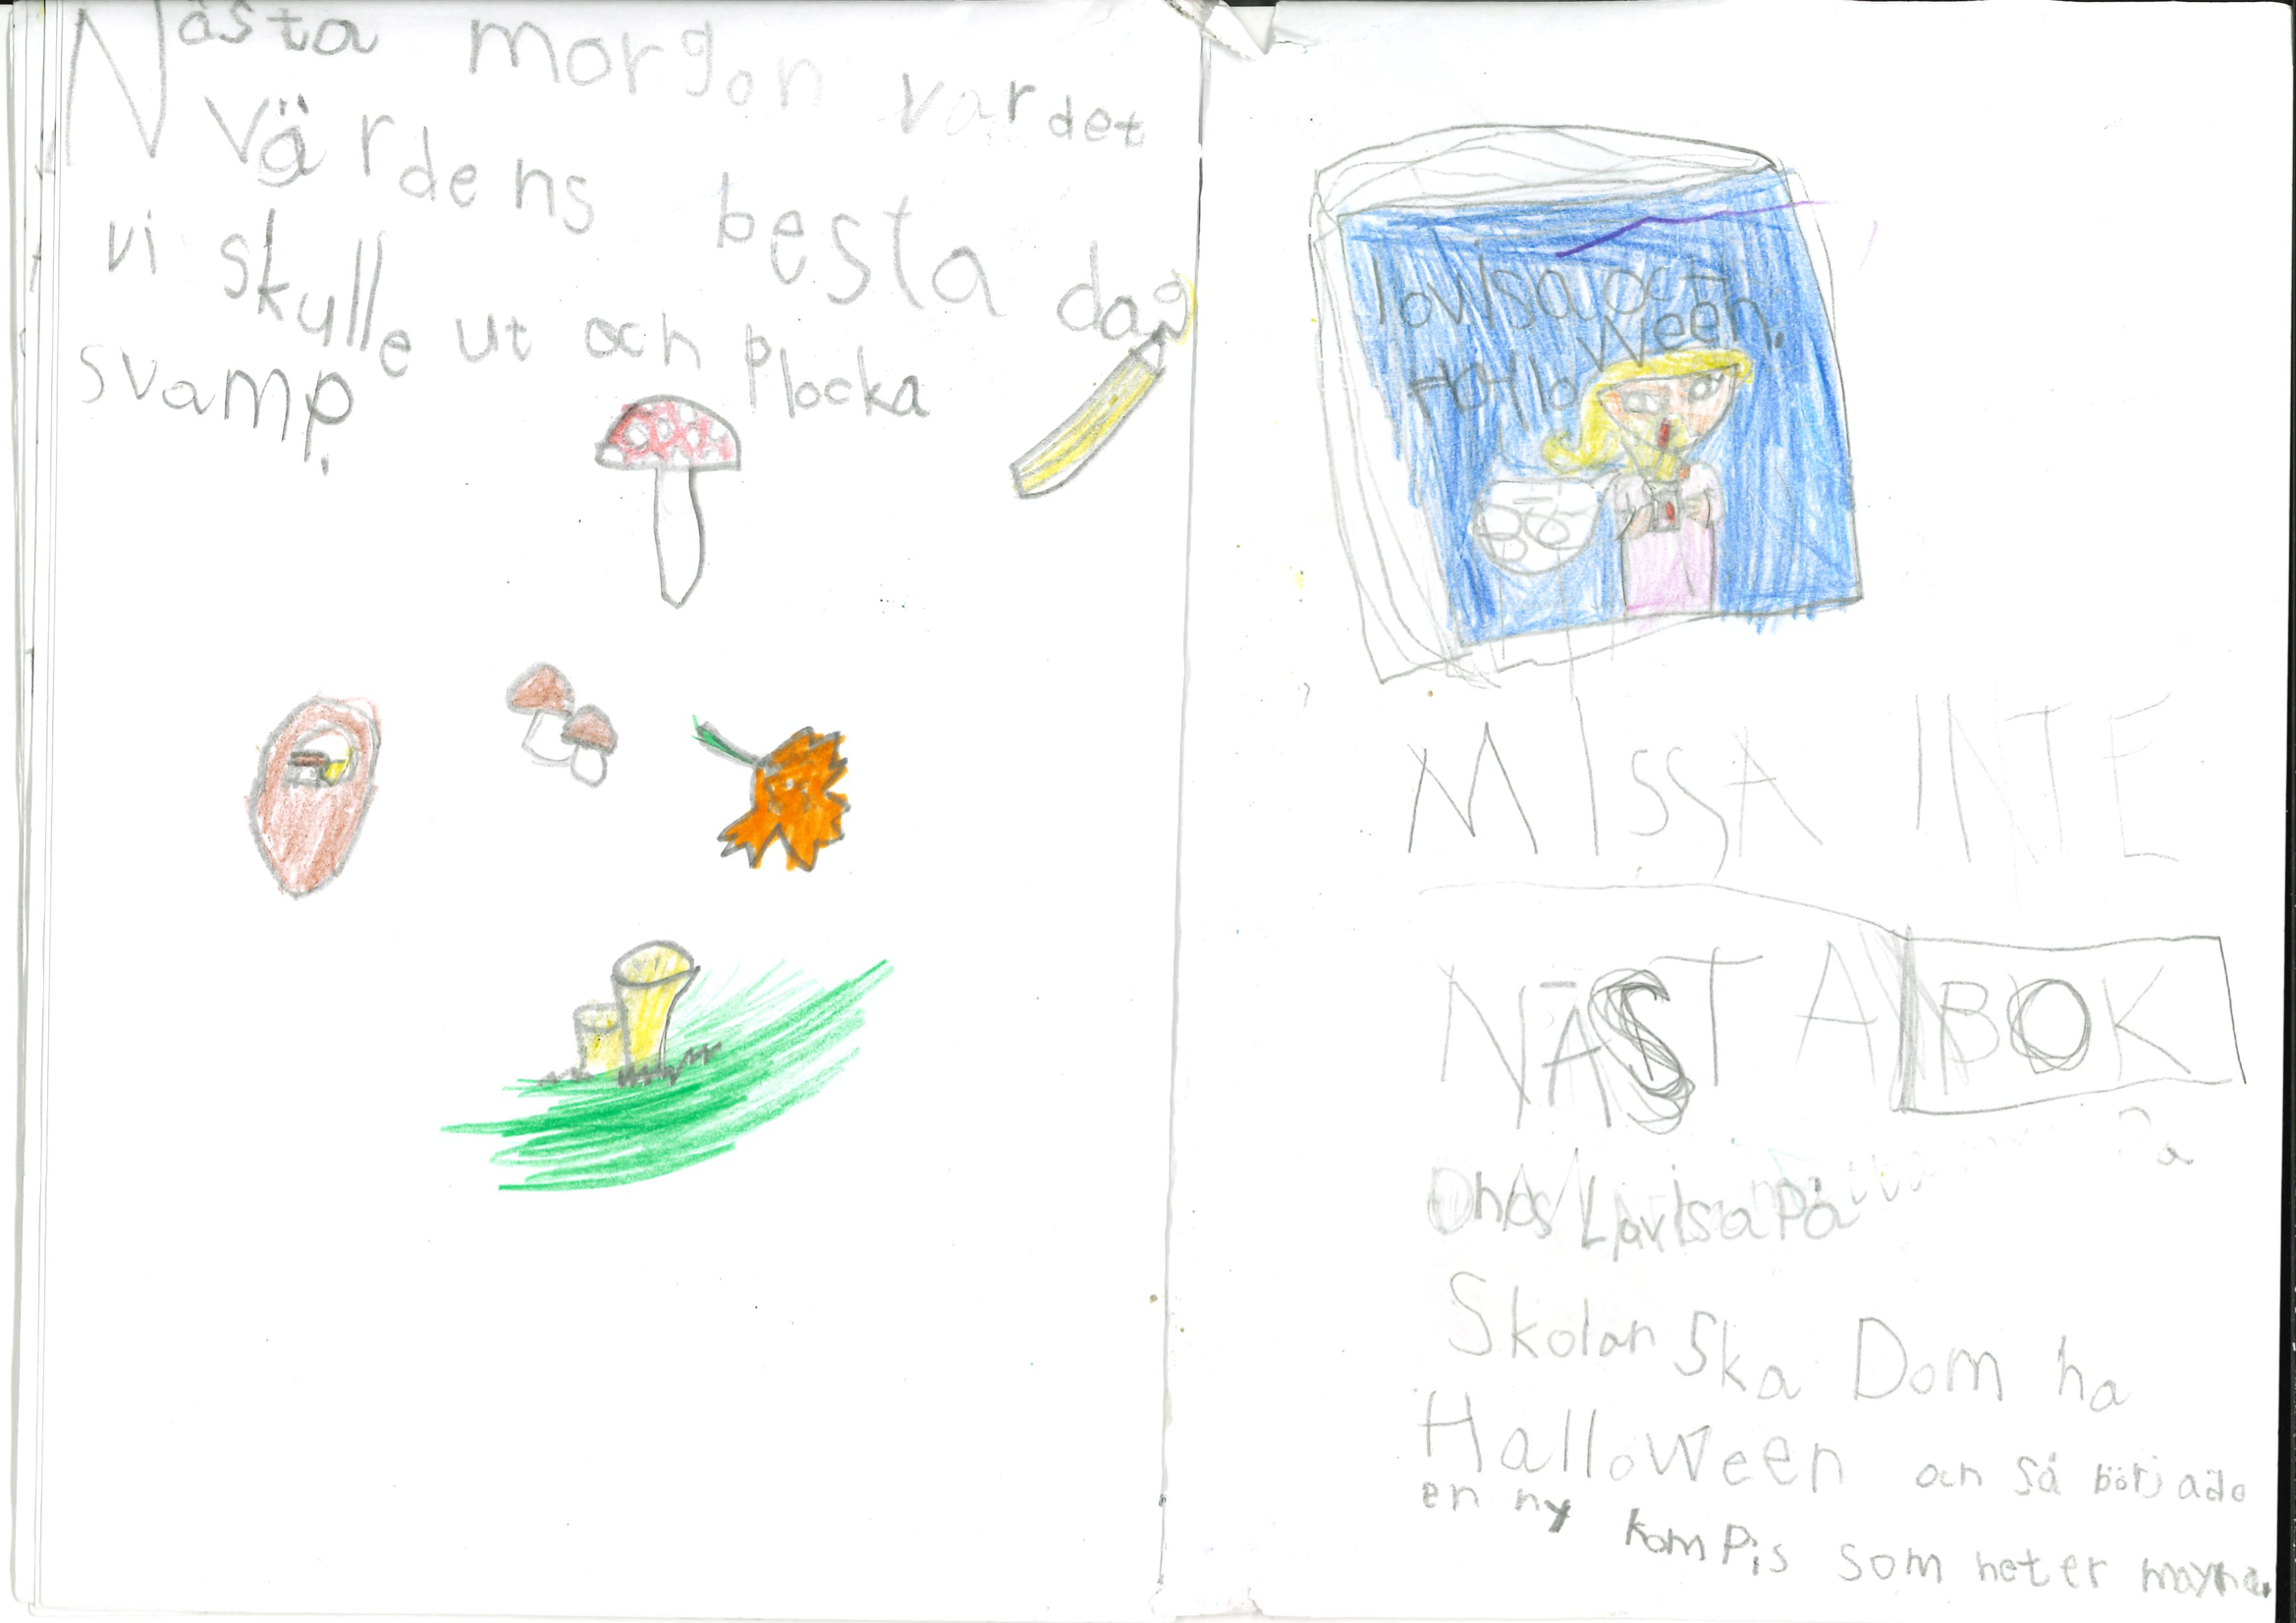 Nästa morgon var det
värdens besta dag
vi skulle ut och plocka
svamp.
lovisa och
Halloween.
MISSA INTE
NÄSTA BOK
hos Lovisa på
Skolan Ska Dom ha
Halloween och så började
en ny kompis som heter